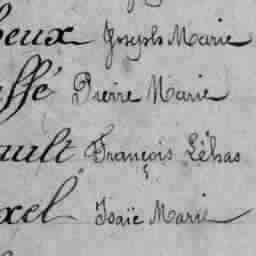 beux Joseph Marie
ffé Pierre Marie
ault François Léhas
xel Isaïe Marie